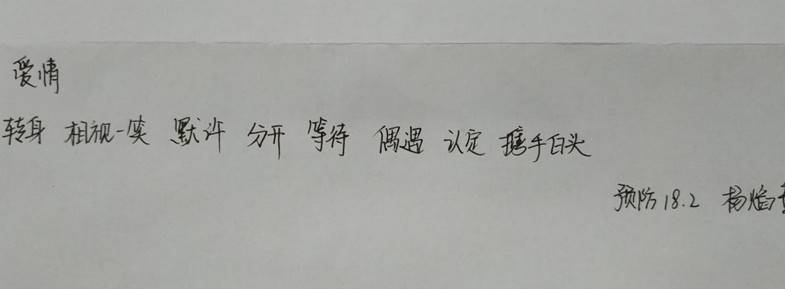 爱情
转身 相视一笑 默许 分开 等待 偶遇 认定 携手白头
预防18.2 杨焰